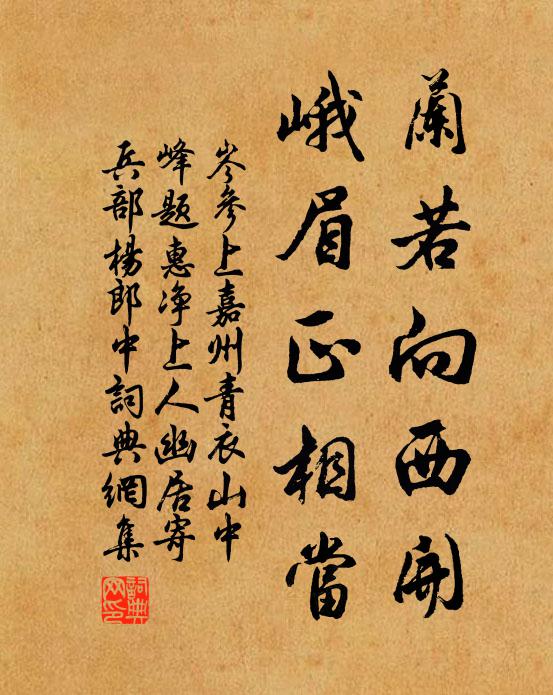 蘭若向西開
峨眉正相當
岑參上嘉州青衣山中
峰題惠净上人幽居寄
兵部楊郎中詞典網集
詞典
网印